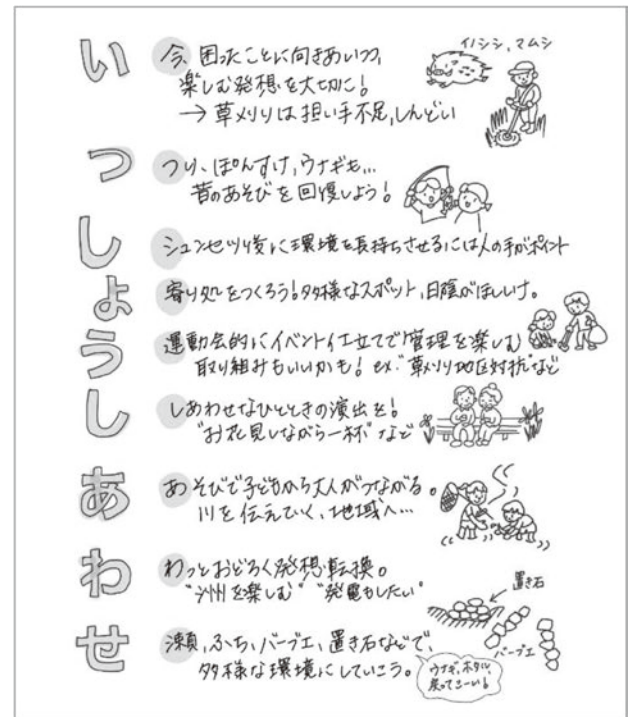 いつしょうしあわせ
イノシシ、マムシ
今、困ったことに向きあいつつ、
楽しむ発想を大切に!
→ 草メリリは担い手不足、しんどい
つり、ぽんすけ、ウナギも…
昔のあそびを回復しよう!
シュンセツ後に環境を長持ちさせるには人の手がポイント
寄り処をつくろう!多様なスポット、日陰がほしいナ。
運動会的にイベント仕立てで管理を楽しむ
取り組みもいいかも! ex.“草メリリ地区対抗”など
しあわせなひとときの演出を!
“お花見しながら一杯”など
あそびで子どもから大人がつながる。
川を伝えていく、地域へ…
わっとおどろく発想転換。
“州を楽しむ” “発電もしたい”
置き石
バーブエ
瀬、ふち、バーブエ、置き石などで、
多様な環境にしていこう。
ウナギ、ホタル、
戻ってこーい!